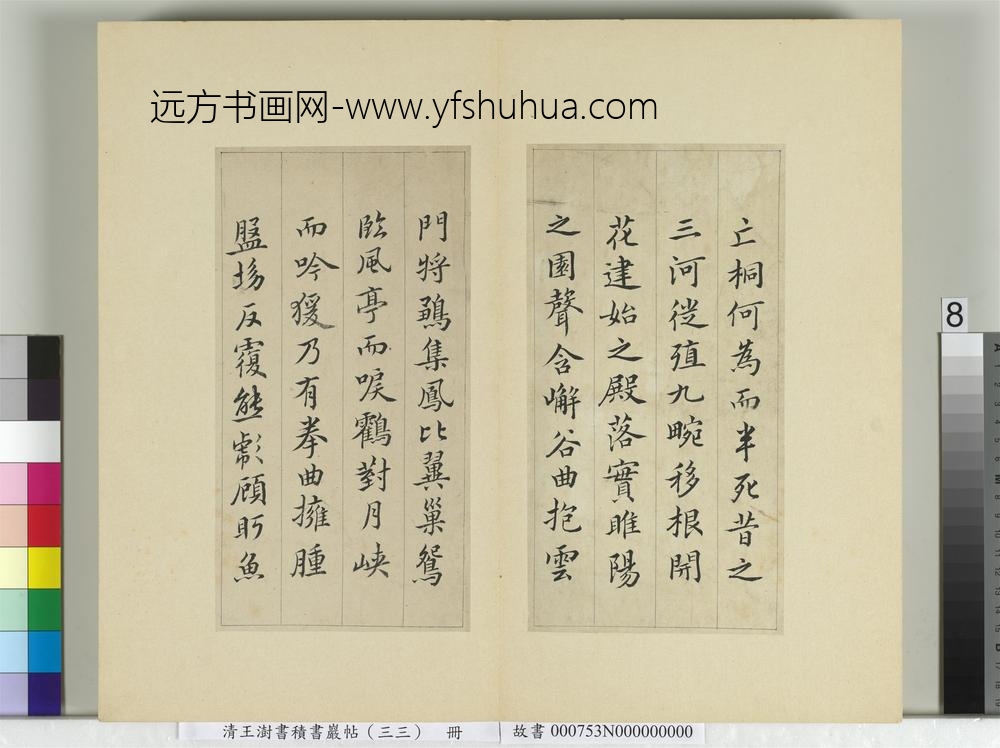 远方书画网-www.yfshuhua.com
亡桐何為而半死昔之
三河徙殖九畹移根開
花建始之殿落實睢陽
之園聲含嶰谷曲抱雲
門將鶵集鳳比翼巢鴛
臨風亭而唳鶴對月峽
而吟猨乃有拳曲擁腫
盤拗反覆熊彪顧盼魚
8
清王澍書積書巖帖（三三） 冊
故書 000753N000000000